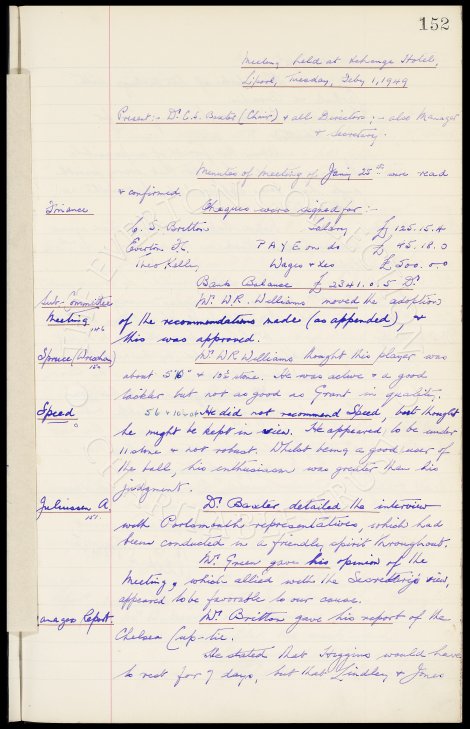 152
Meeting held at Exchange Hotel,
L'pool, Tuesday, Feby 1, 1949
Present:- Dr C.S. Baxter (Chair) & all Directors; - also Manager
& Secretary.
Minutes of Meeting of Jany 25th were read
& confirmed.
Finance Cheques were signed for:-
C. S. Britton Salary £125.15.4
Everton F.C. P A Y E on do £ 45.18.0
Theo Kelly Wages & Exs £500.0.0
Bank Balance £2341.0.5 Dr
Sub-Committee Mr W.R. Williams moved the adoption
Meeting 146 of the recommendations made (as appended), &
this was approved.
Spruce (Wrexham) Mr W.R. Williams thought this player was
about 5'8" & 10½ stone. He was active & a good
tackler but not as good as Grant in quality.
Speed He did not recommend Speed, but thought
he might be kept in view. He appeared to be under
11 stone & not robust. Whilst being a good user of
the ball, his enthusiasm was greater than his
judgment.
Juliussen A. Dr Baxter detailed the interview
151 with Portsmouth's representatives, which had
been conducted in a friendly spirit throughout.
Mr Green gave his opinion of the
Meeting, which allied with the Secretary's view,
appeared to be favorable to our cause.
anager Report. Mr Britton gave his report of the
Chelsea Cup-tie.
He stated that Higgins would have
to rest for 7 days, but that Lindley & Jones